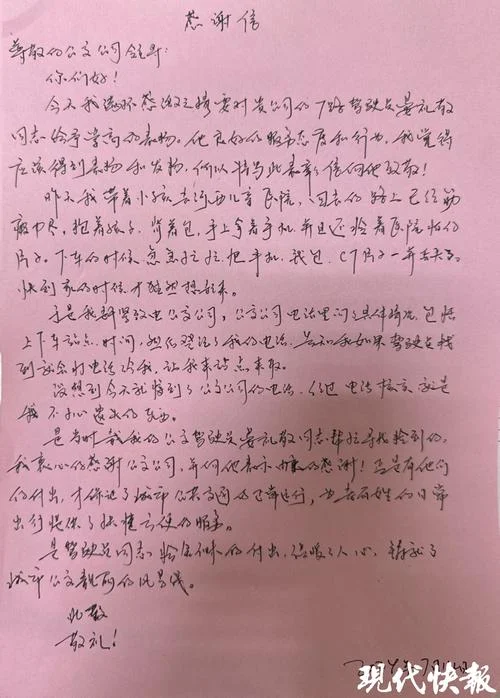 感谢信
尊敬的公交公司领导:
你们好!
今天我满怀感激之情要对贵公司的7路驾驶员
同志给予崇高的表扬。他良好的服务态度和行为,我觉得
应该得到表扬和发扬,所以特写此表彰信向他致敬!
昨天我带着小孩去河西儿童医院,回去的路上已经筋
疲力尽,抱着孩子,背着包,手上拿着手机并且还拎着医院拍的
片子。下车的时候急急忙忙把手机、钱包、CT片子一并丢失了。
快到家的时候才猛然想起来。
于是我赶紧致电公交公司,公交公司电话里问了具体情况,包括
上下车站点、时间,然后登记了我的电话。告知我如果驾驶员找
到就会打电话给我,让我来站点来取。
没想到今天就接到了公交公司的电话,经过电话核实就是
我不小心遗失的东西。
是当时载我的公交驾驶员同志帮忙寻找捡到的,
我衷心的感谢公交公司,并向他表示由衷的感谢!正是有他们
的付出,才保证了城市公共交通的正常运行,也为百姓的日常
出行提供了快捷方便的服务。
是驾驶员同志拾金不昧的付出,温暖了人心,铸就了
城市公交靓丽的风景线。
此致
敬礼!
现代快报